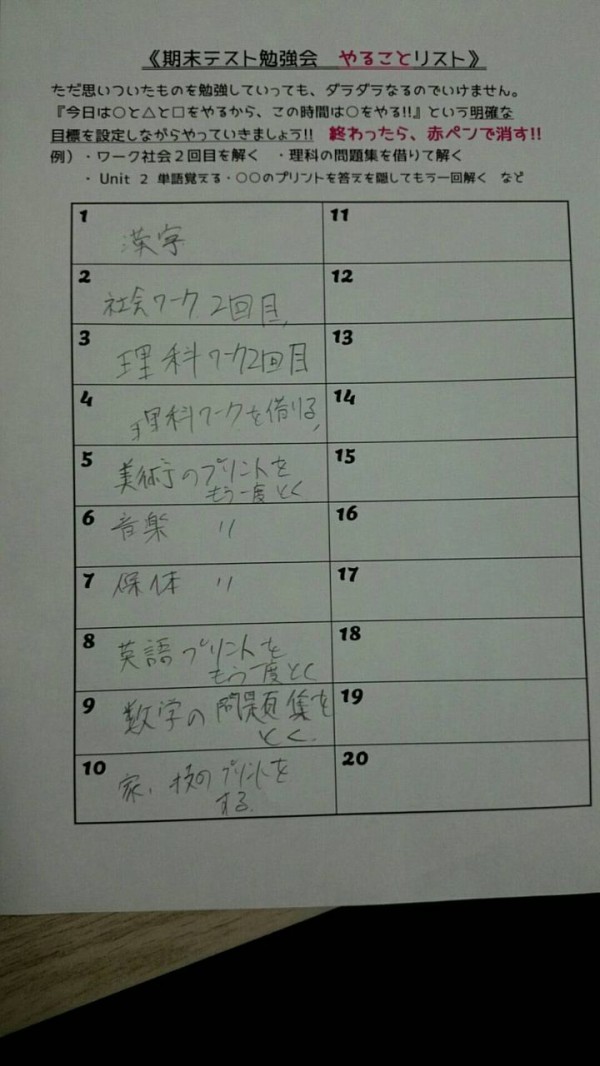 《期末テスト勉強会　やることリスト》
ただ思いついたものを勉強していっても、ダラダラなるのでいけません。
『今日は○と△と□をやるから、この時間は○をやる!!』という明確な
目標を設定しながらやっていきましょう!!　終わったら、赤ペンで消す!!
例）・ワーク社会２回目を解く　・理科の問題集を借りて解く
・Unit 2 単語覚える・○○のプリントを答えを隠してもう一回解く　など
1
漢字
2
社会ワーク 2回目
3
理科ワーク2回目
4
理科ワークを借りる
5
美術のプリントを
もう一度とく
6
音楽　〃
7
保体　〃
8
英語プリントを
もう一度とく
9
数学の問題集を
とく
10
家、技のプリントを
する
11
12
13
14
15
16
17
18
19
20